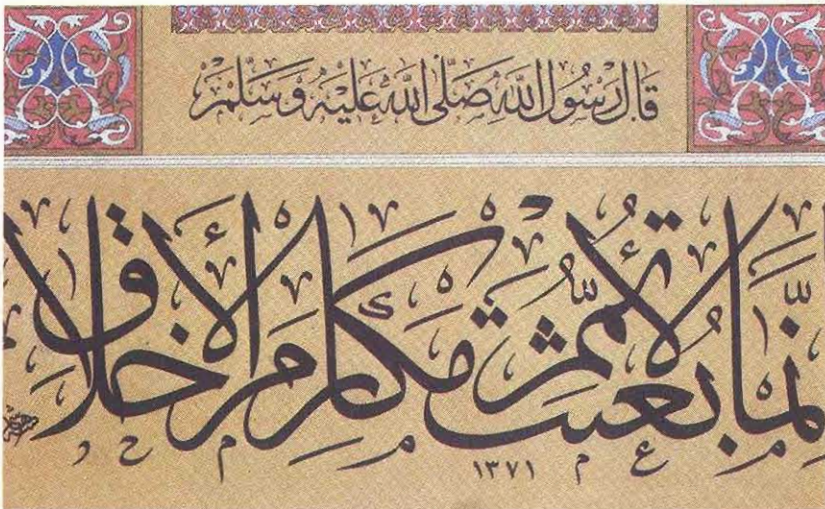 قَالَ رَسُولُ اللّٰهِ صَلَّى اللّٰهُ عَلَيْهِ وَسَلَّمَ
إِنَّمَا بُعِثْتُ لِأُتَمِّمَ مَكَارِمَ الْأَخْلَاقِ
١٣٧١